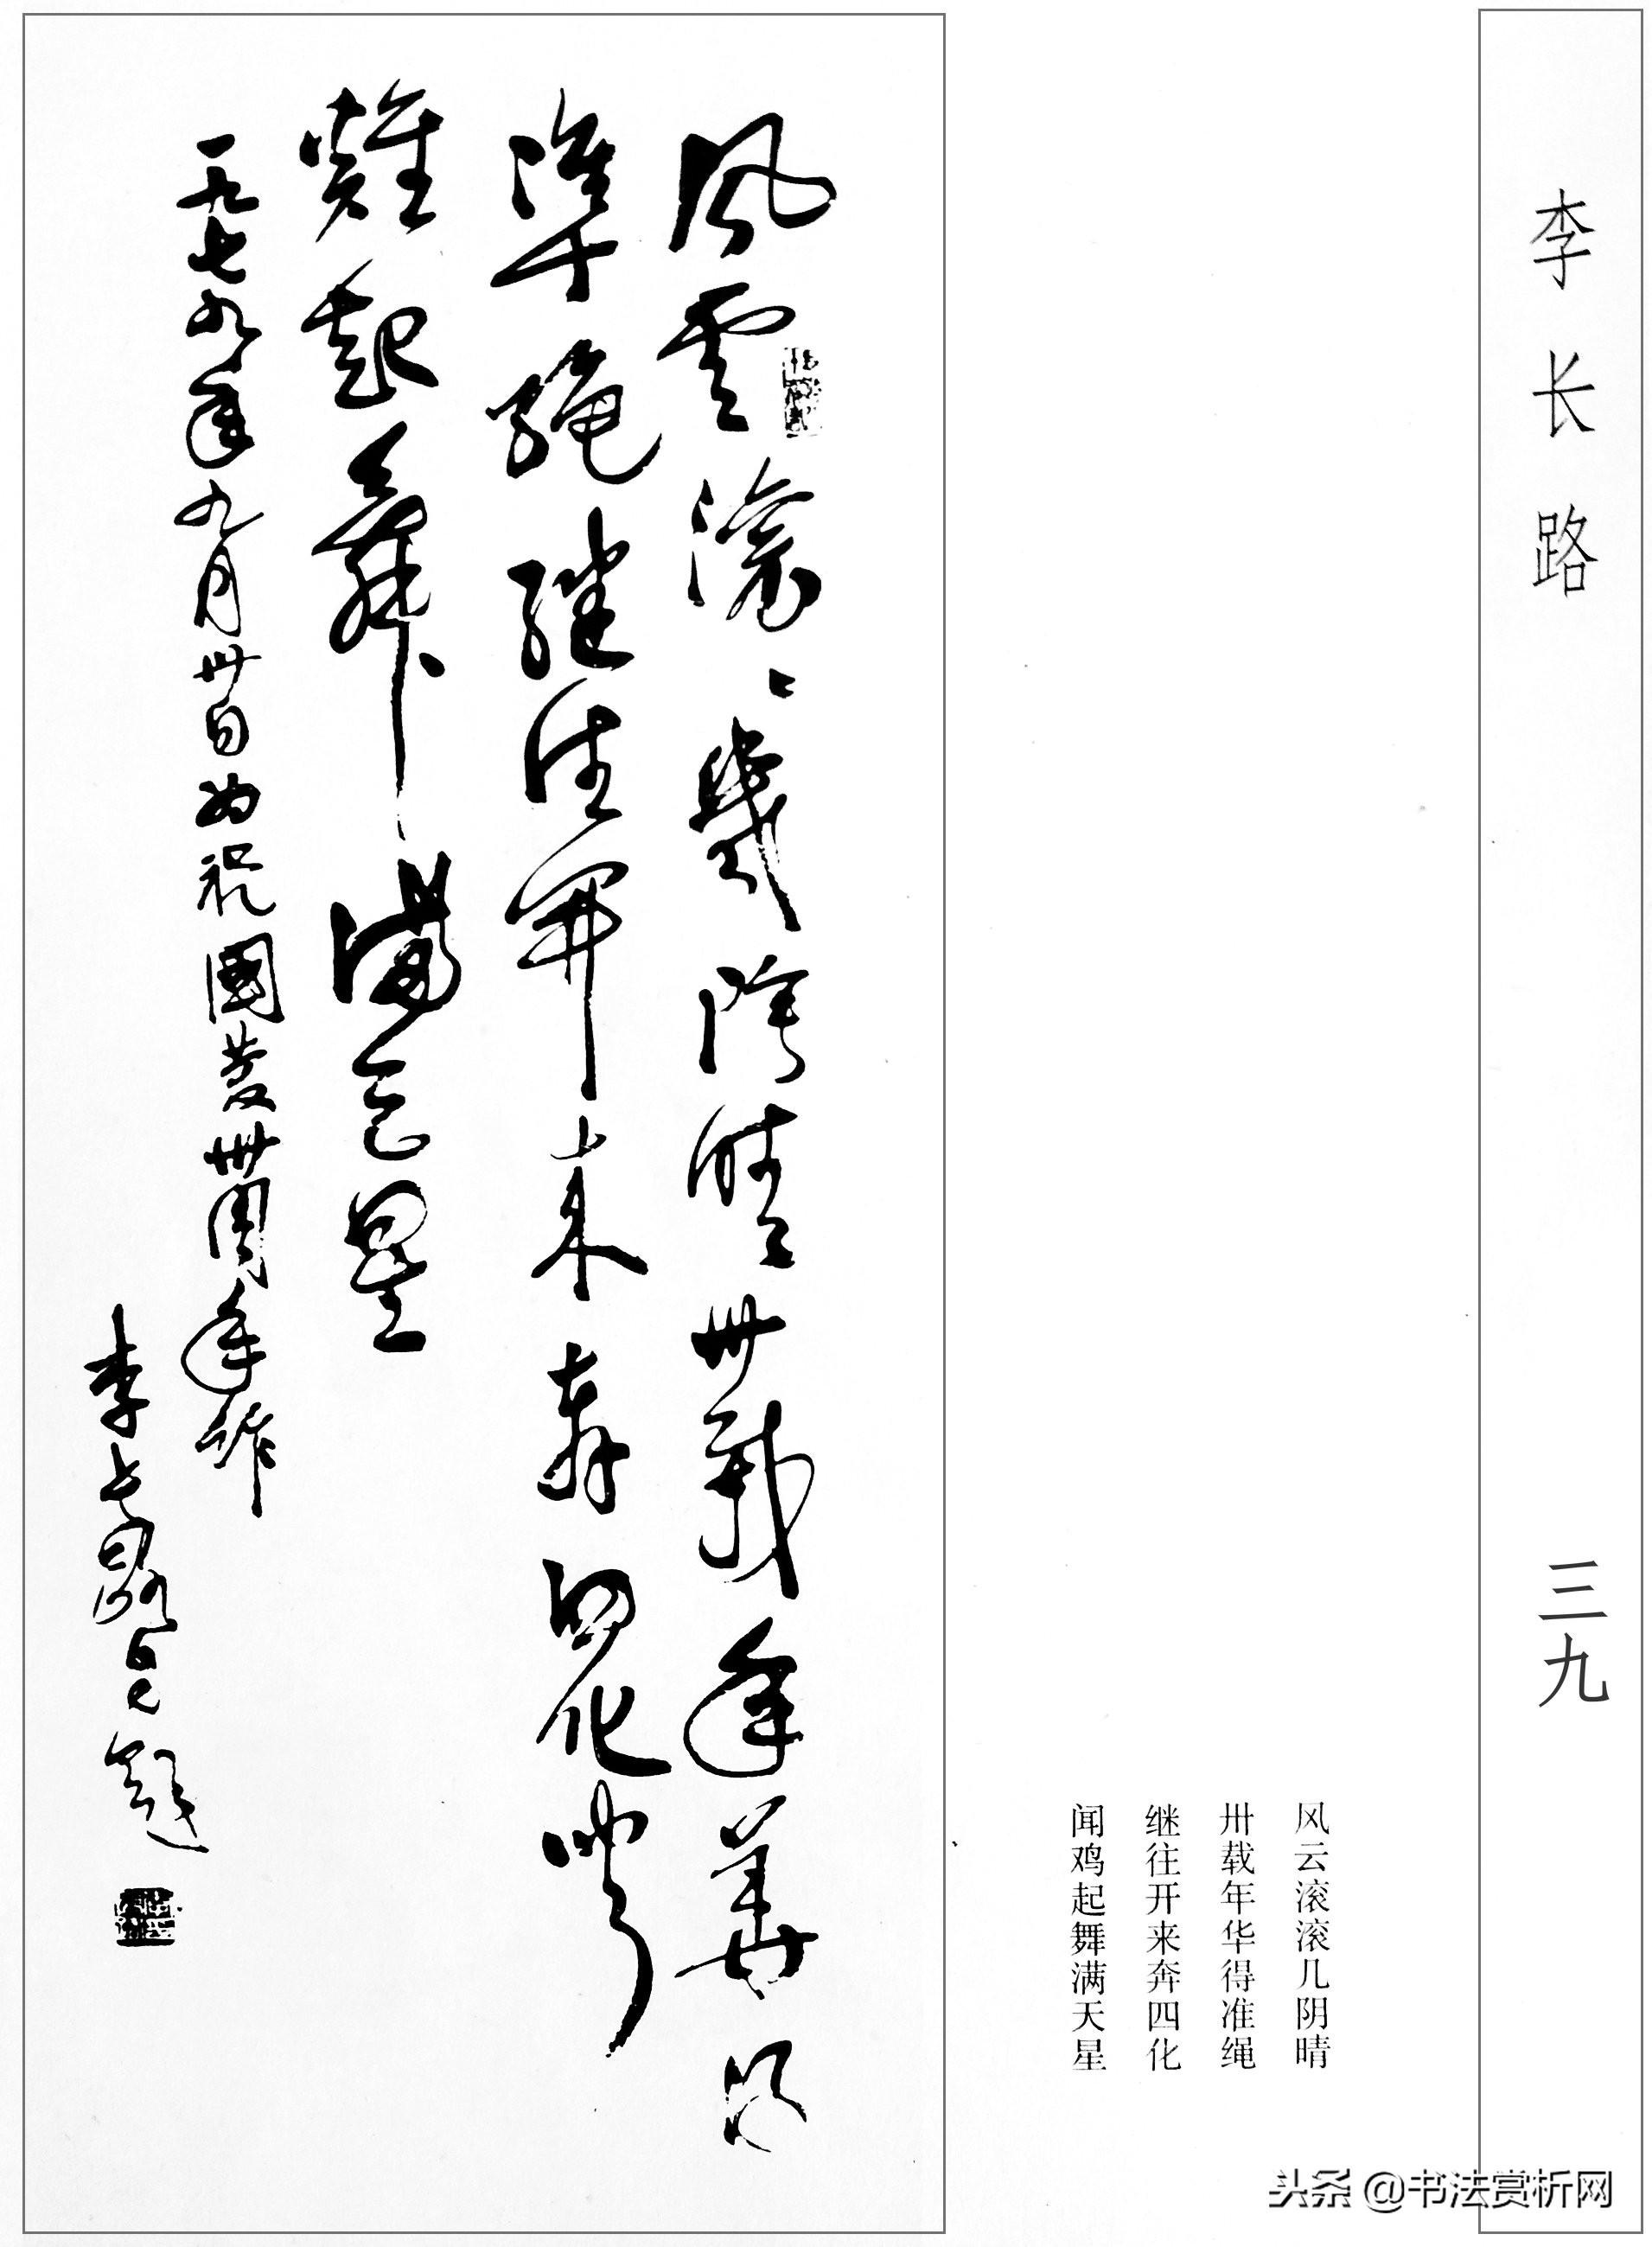 李长路
三九
风云滚滚几阴晴
卅载年华得准绳
继往开来奔四化
闻鸡起舞满天星
風雲滚〻幾陰晴卅載年華得
準繩继往开来奔四化闻
雞起舞满天星
一九七九年九月卅日为祝國慶卅周年作
李长路自题
头条 @书法赏析网